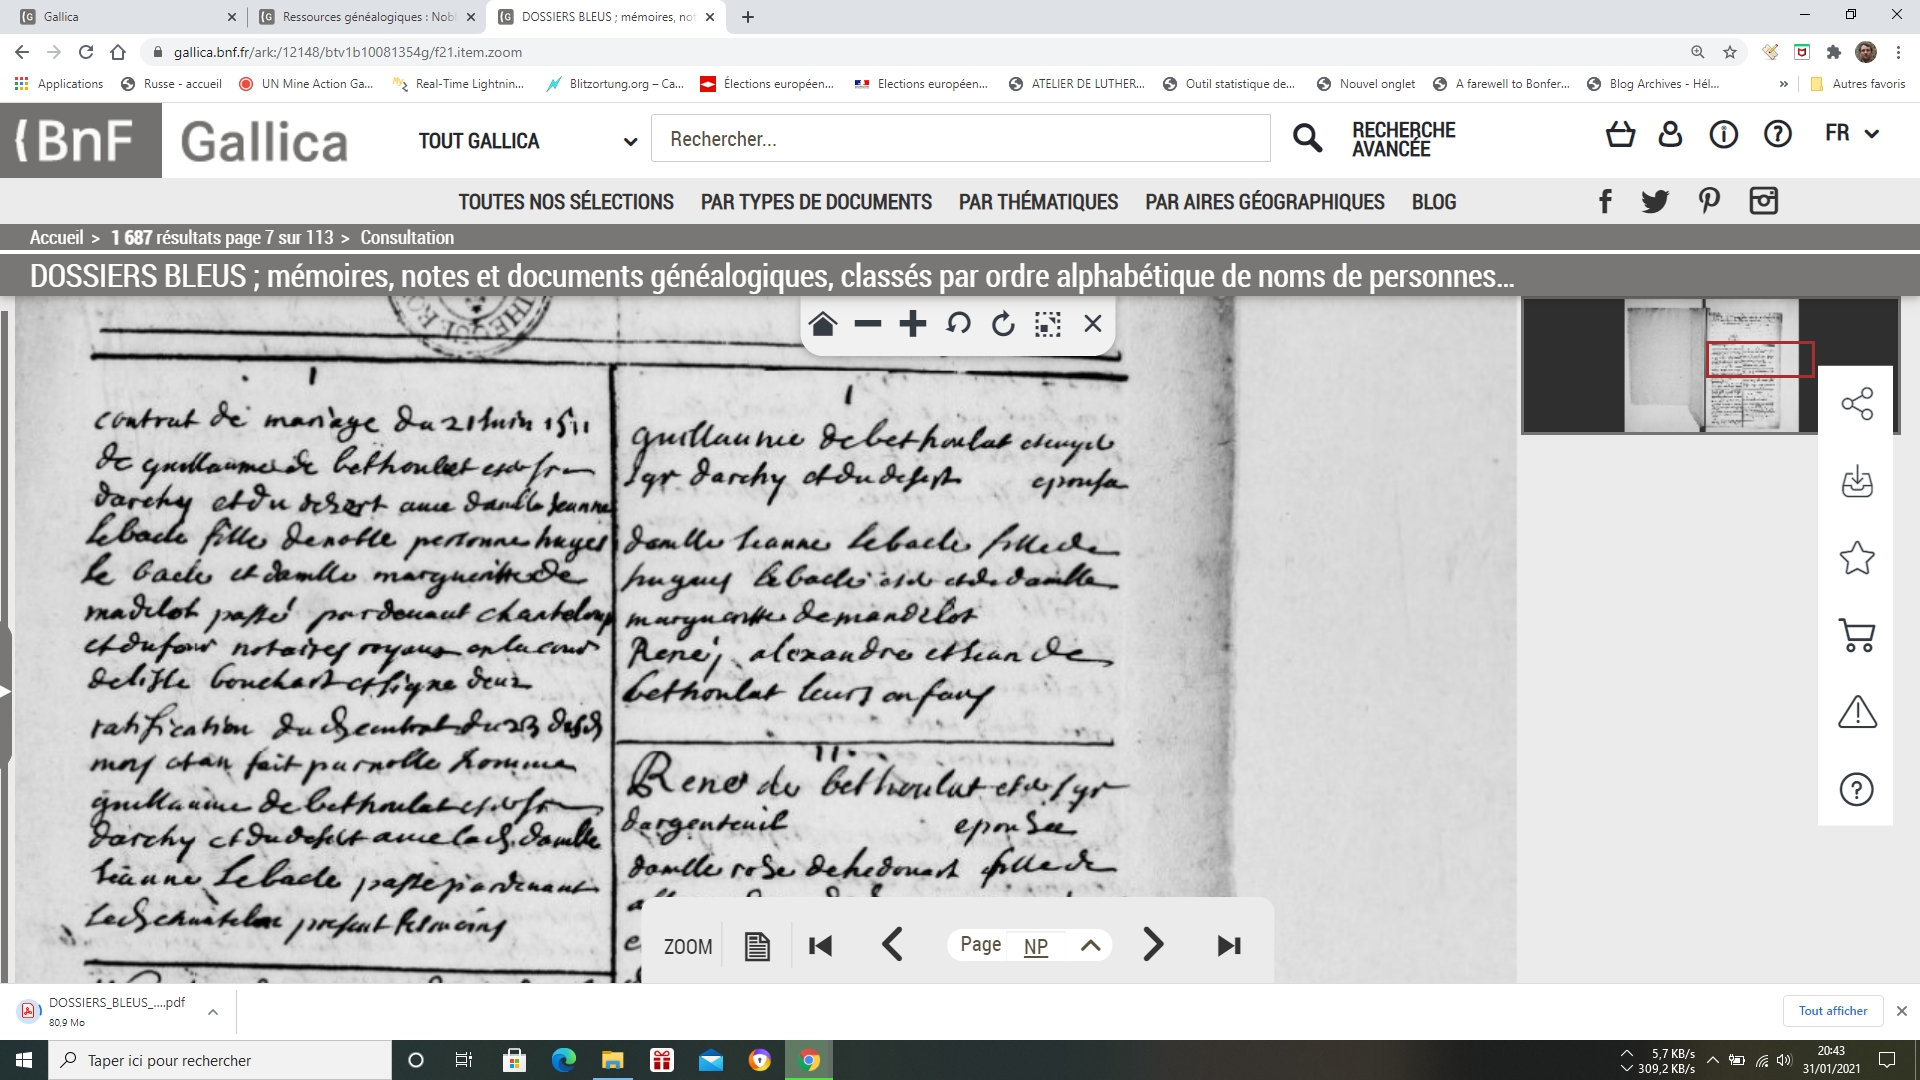 Gallica
Ressources généalogiques : Nobl
DOSSIERS BLEUS ; mémoires, not
gallica.bnf.fr/ark:/12148/btv1b10081354g/f21.item.zoom
Applications
Russe - accueil
UN Mine Action Ga...
Real-Time Lightnin...
Blitzortung.org – Ca...
Élections européen...
Elections européen...
ATELIER DE LUTHER...
Outil statistique de...
Nouvel onglet
A farewell to Bonfer...
Blog Archives - Hél...
»
Autres favoris
BnF
Gallica
TOUT GALLICA
Rechercher...
RECHERCHE
AVANCÉE
FR
TOUTES NOS SÉLECTIONS
PAR TYPES DE DOCUMENTS
PAR THÉMATIQUES
PAR AIRES GÉOGRAPHIQUES
BLOG
Accueil > 1 687 résultats page 7 sur 113 > Consultation
DOSSIERS BLEUS ; mémoires, notes et documents généalogiques, classés par ordre alphabétique de noms de personnes...
I
contrat de mariage du 21 Juin 1511
de guillaume de bethoulat
darchy et du desert avec damlle Jeanne
lebacle fille de noble personne hugues
le bacle et damlle margueritte de
madelot passé pardevant chanteloup
et dufour notaires royaux en la cour
de lisle bouchart et signe deux
ratification dud contrat du 23 desd
mois et an fait par noble homme
guillaume de bethoulat
darchy et du desert avec lad. damlle
Jeanne Lebacle passé pardevant
present tesmoins
I
guillaume de bethoulat
sgr darchy et du desert epousa
damlle Jeanne lebacle fille de
hugues lebacle et de damlle
margueritte de mandelot
René, alexandre et Jean de
bethoulat leurs enfans
II
René de bethoulat sgr
dargenteuil epousa
damlle rose de hedouart fille de
ZOOM
Page
NP
DOSSIERS_BLEUS_....pdf
80,9 Mo
Tout afficher
Taper ici pour rechercher
5,7 KB/s
309,2 KB/s
20:43
31/01/2021